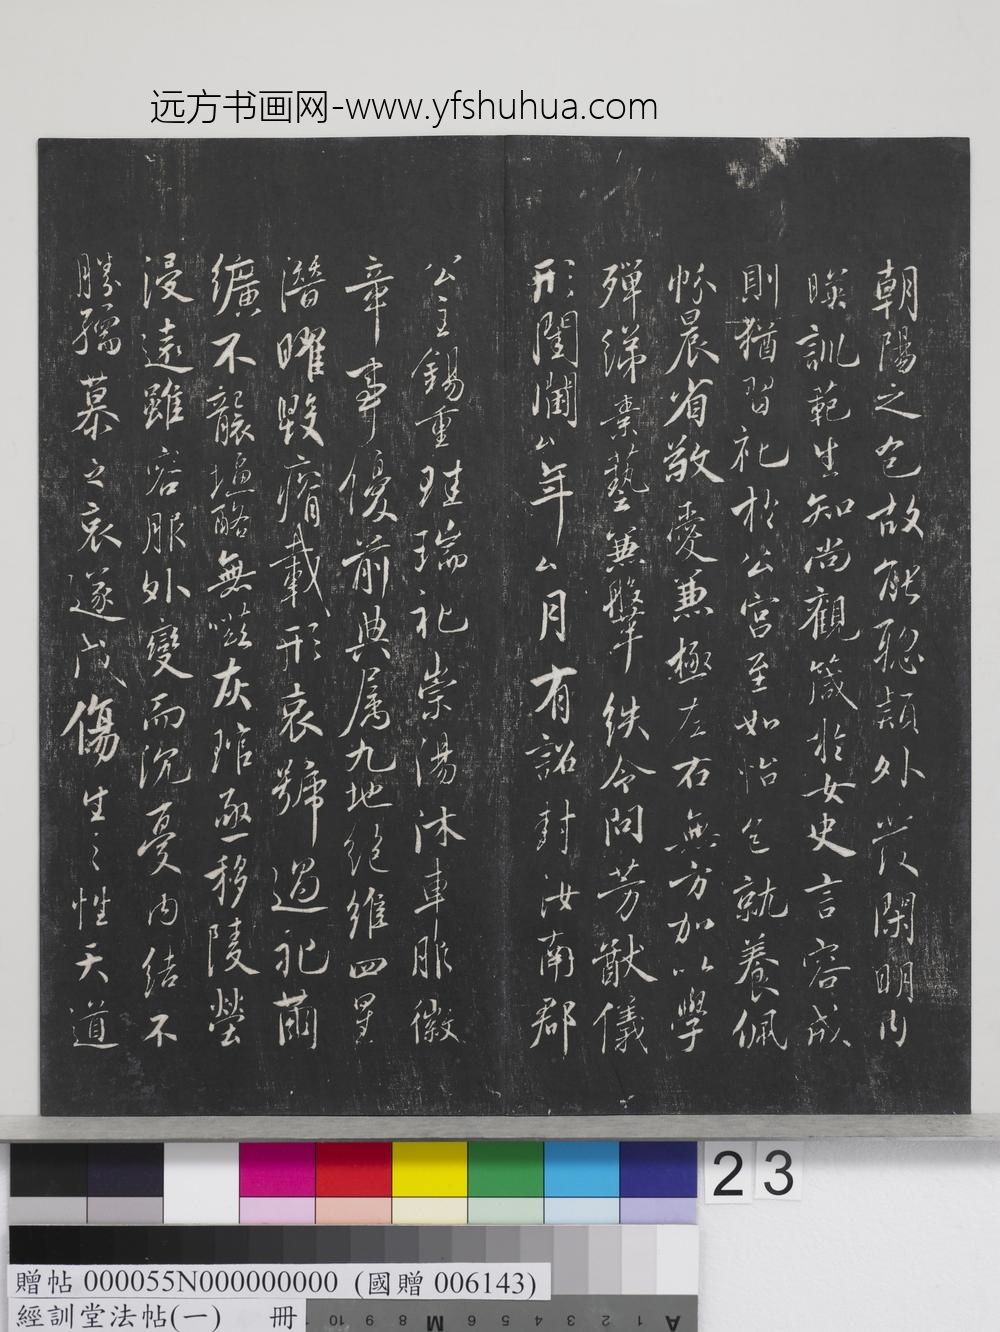 远方书画网-www.yfshuhua.com
朝陽之色故能聰穎外發閑明內
暎訓範生知尚觀箴於女史言容成
則猶習礼於公宮至如怡色就養佩
帉晨省敬愛兼極左右無方加以學
殫綈橐藝兼鞶紩令問芳猷儀
形閨閫厶年厶月有詔封汝南郡
公主錫重珪瑞礼崇湯沐車服徽
章事優前典屬九地絕維四星
潛曜毀瘠載形哀號過礼繭
纊不襲塩酪無嗞灰琯亟移陵塋
浸遠雖容服外變而沉憂內結不
勝孺慕之哀遂成傷生之性天道
23
贈帖 000055N000000000 (國贈 006143)
經訓堂法帖(一) 冊